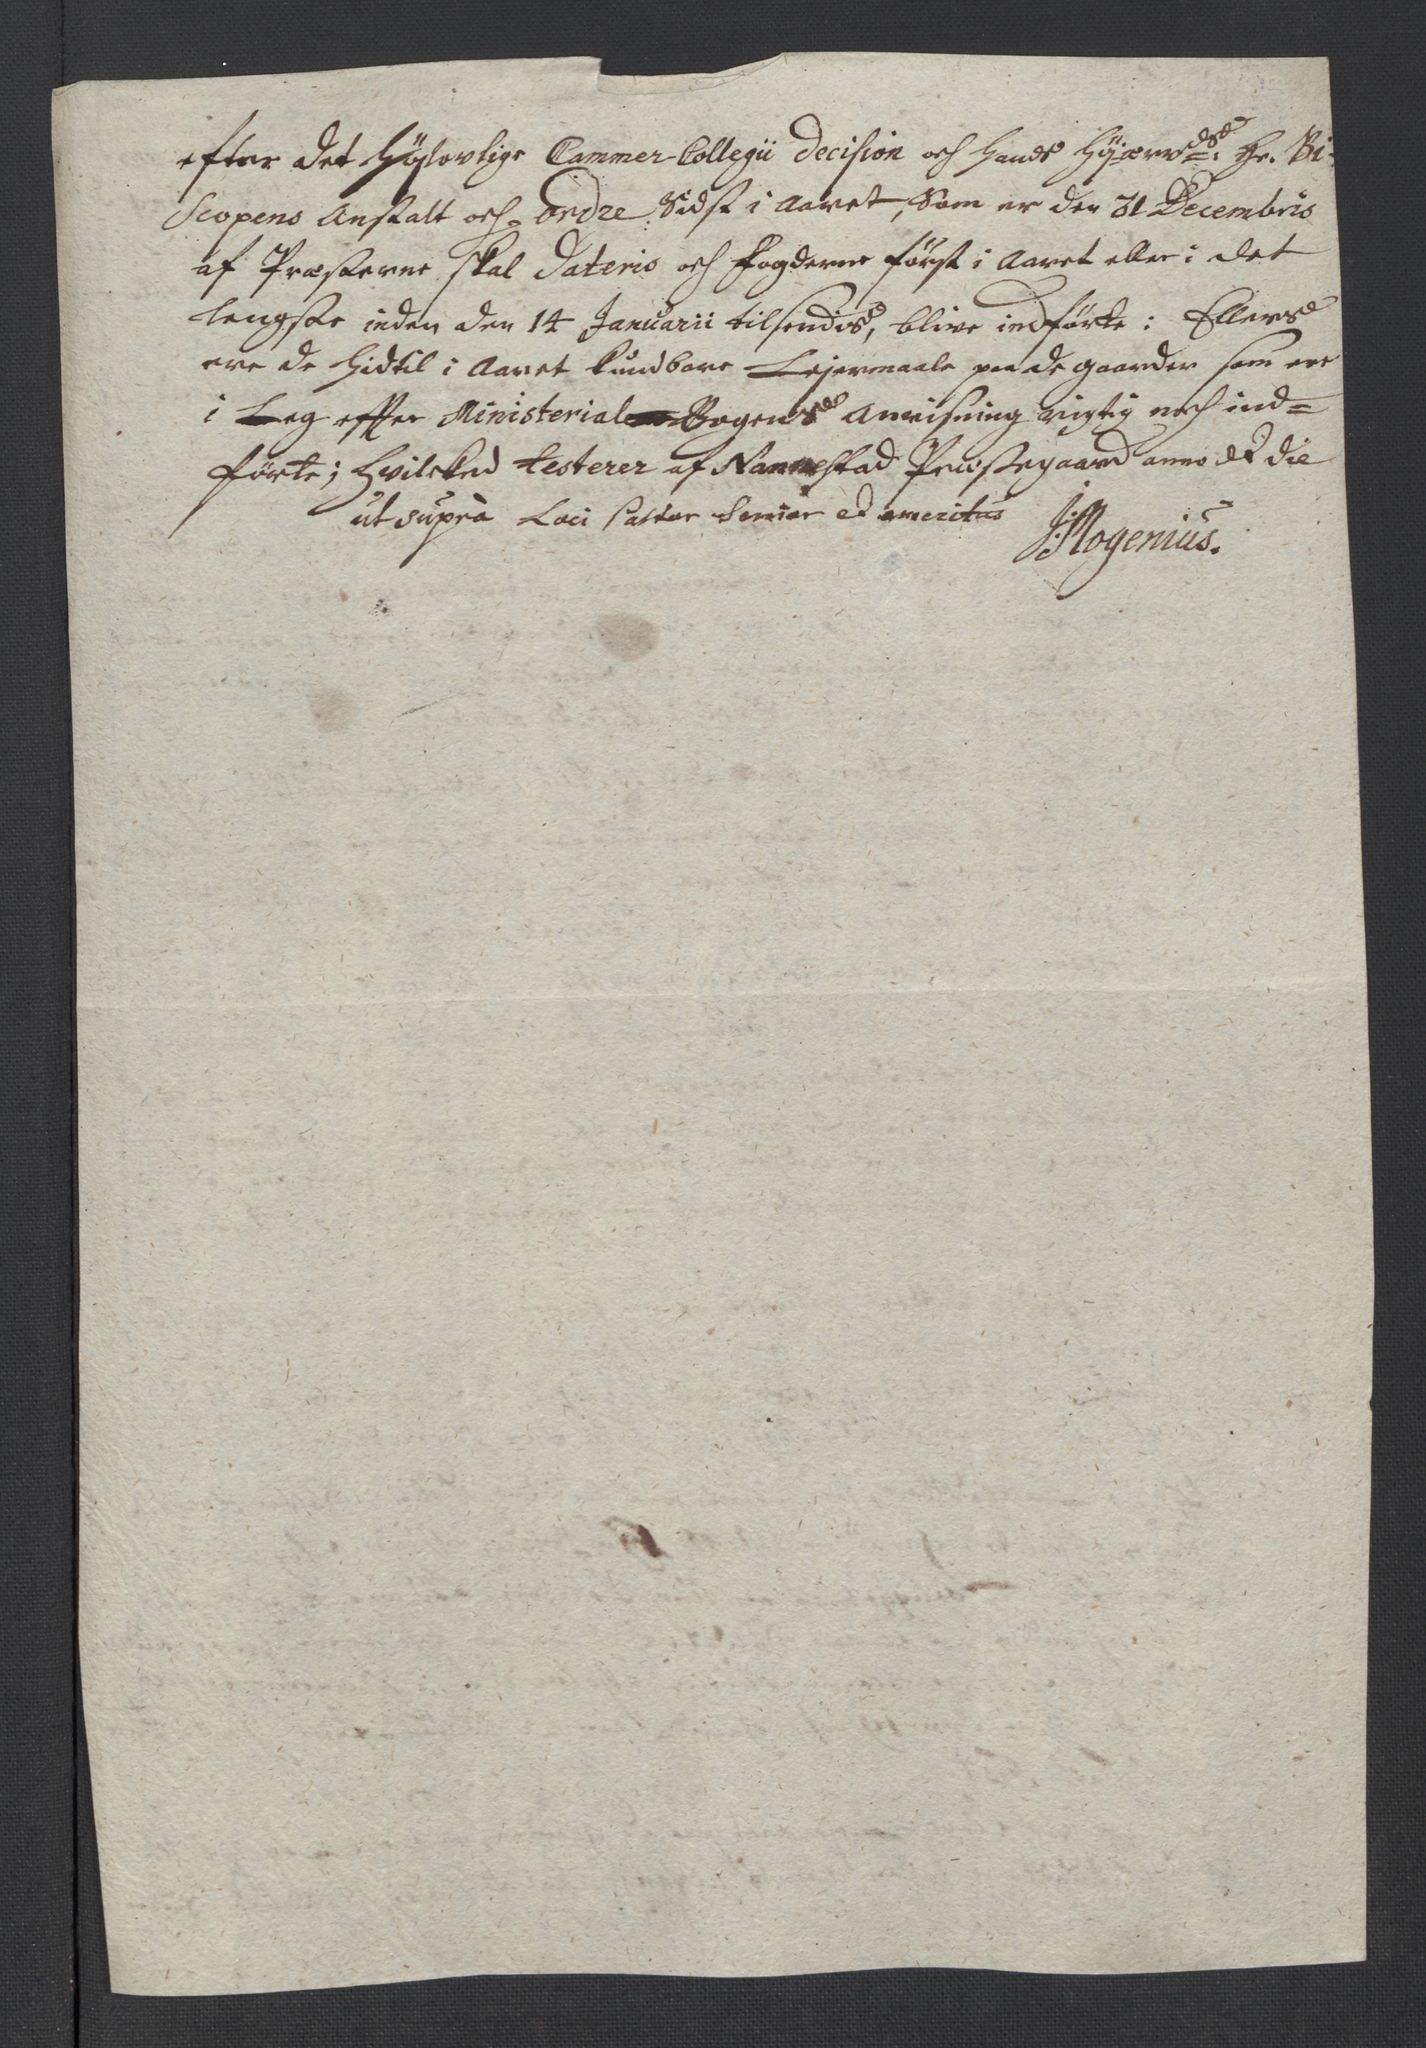 efter det Höylovlige Cammer-Collegii Decision och Hands Höyærvds: Hr. Bi-
scopens Anstalt och ordre Sidst i Aaret, Som er den 31 Decembris
af Præsterne skal dateris och fogderne först i Aaret eller i det
lengste inden den 14 Januarii tilsendis, blive indförte: Ellers
ere de hidtil i Aaret kundbare Lejermaale paa de gaarder som ere
i Leg effter Ministerial Bogens Anviisning rigtig noch ind=
förte; Hvilcked testerer af Nannestad Præstegaard anno et die
ut suprà Loci Pastor Senior et emeritus
J: Mogenius.